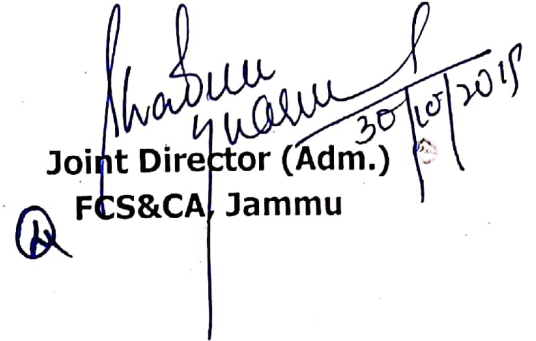 30/10/2019
Joint Director (Adm.)
FCS&CA, Jammu